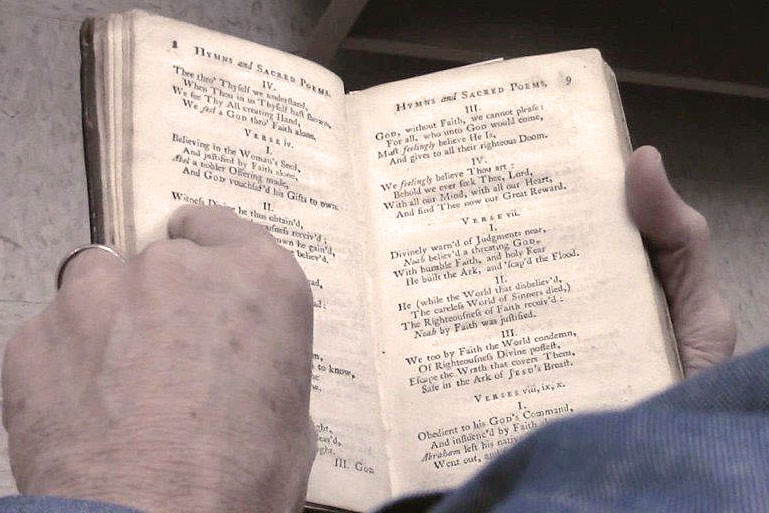 8 HYMNS and SACRED POEMS.
IV.
Thee thro' Thyſelf we underſtand,
When Thou in us Thyſelf haſt ſhown,
We ſee Thy All creating Hand,
We feel a GOD thro' Faith alone.
VERSE iv.
I.
Believing in the Woman's Seed,
And juſtified by Faith alone,
Abel a nobler Offering made,
And GOD vouchſaf'd his Gifts to own.
II.
Witneſs Divine he thus obtain'd,
receiv'd:
own he gain'd,
believ'd.
to know,
III. GOD
HYMNS and SACRED POEMS. 9
III.
GOD, without Faith, we cannot pleaſe:
For all, who unto GOD would come,
Muſt feelingly believe He Is,
And gives to all their righteous Doom.
IV.
We feelingly believe Thou art:
Behold we ever ſeek Thee, Lord,
With all our Mind, with all our Heart,
And find Thee now our Great Reward.
VERSE vii.
I.
Divinely warn'd of Judgments near,
Noah believ'd a threatng GOD,
With humble Faith, and holy Fear
He built the Ark, and 'ſcap'd the Flood.
II.
He (while the World that diſbeliev'd,
The careleſs World of Sinners died,)
The Righteouſneſs of Faith receiv'd:
Noah by Faith was juſtified.
III.
We too by Faith the World condemn,
Of Righteouſneſs Divine poſſeſt,
Eſcape the Wrath that covers Them,
Safe in the Ark of JESU's Breaſt.
VERSES viii, ix, x.
I.
Obedient to his GOD's Command,
And influenc'd by Faith
Abraham left his
Went out,